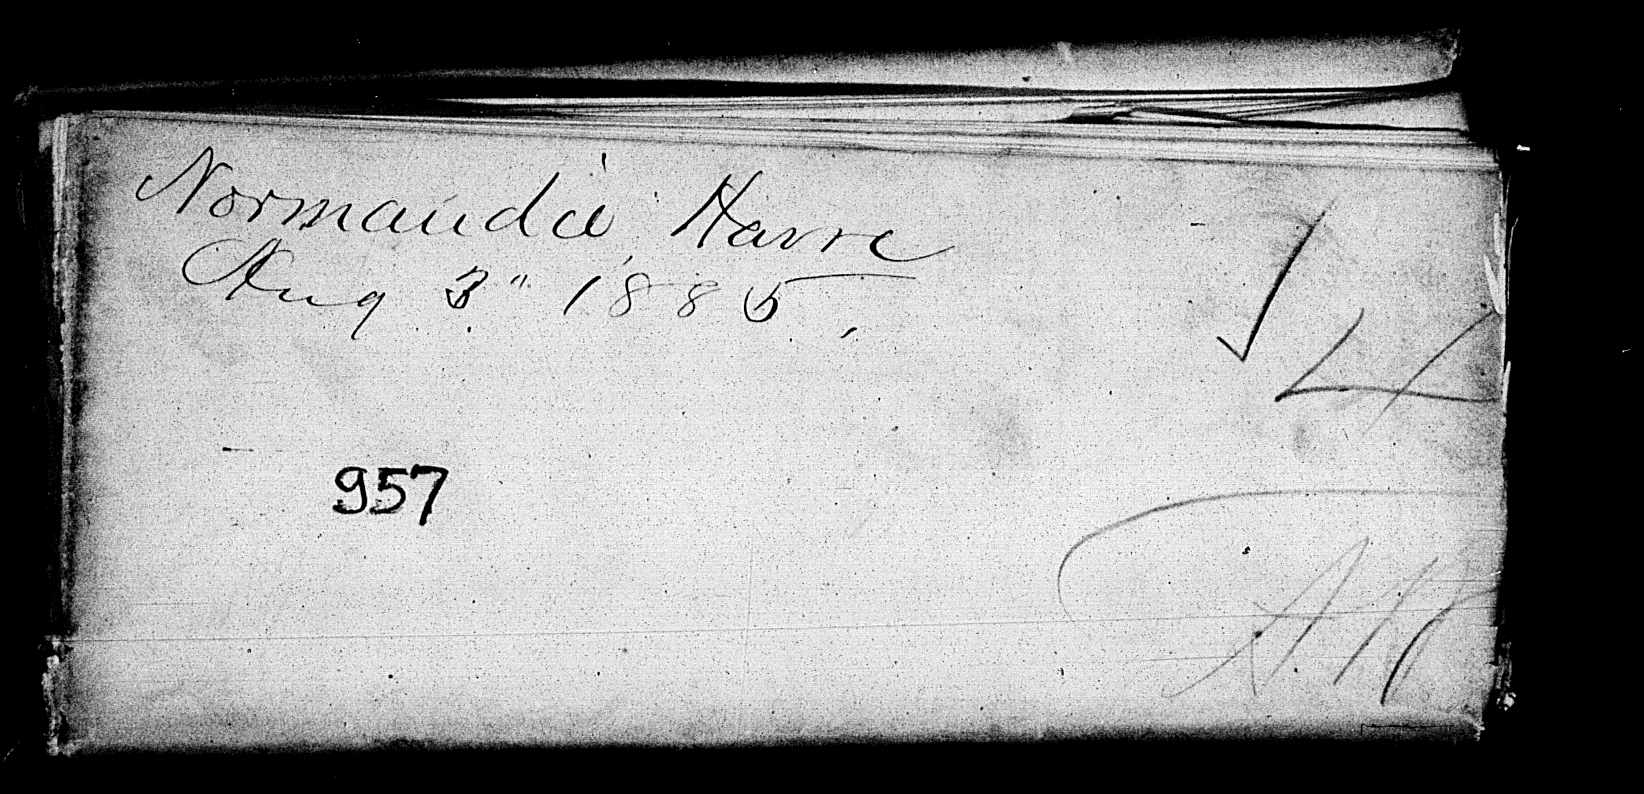 Normandie Havre
Aug 3" 1885,
4
957